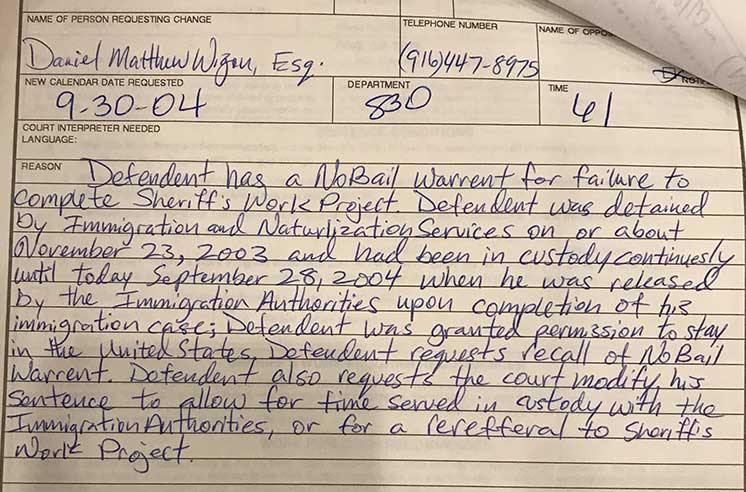 NAME OF PERSON REQUESTING CHANGE
TELEPHONE NUMBER
NAME OF OPPOS
Daniel Matthew Wigon, Esq.
(916)447-8975
NEW CALENDAR DATE REQUESTED
DEPARTMENT
TIME
9-30-04
830
61
COURT INTERPRETER NEEDED
LANGUAGE:
REASON
Defendent has a No Bail Warrent for failure to
complete Sheriff's Work Project. Defendent was detained
by Immigration and Naturlization Services on or about
November 23, 2003 and had been in custody continuesly
until today September 28, 2004 when he was released
by the Immigration Authorities upon completion of his
immigration case; Defendent was granted permission to stay
in the United States. Defendent requests recall of No Bail
Warrent. Defendent also requests the court modify his
Sentence to allow for time served in custody with the
Immigration Authorities, or for a rerefferal to Sheriff's
Work Project.